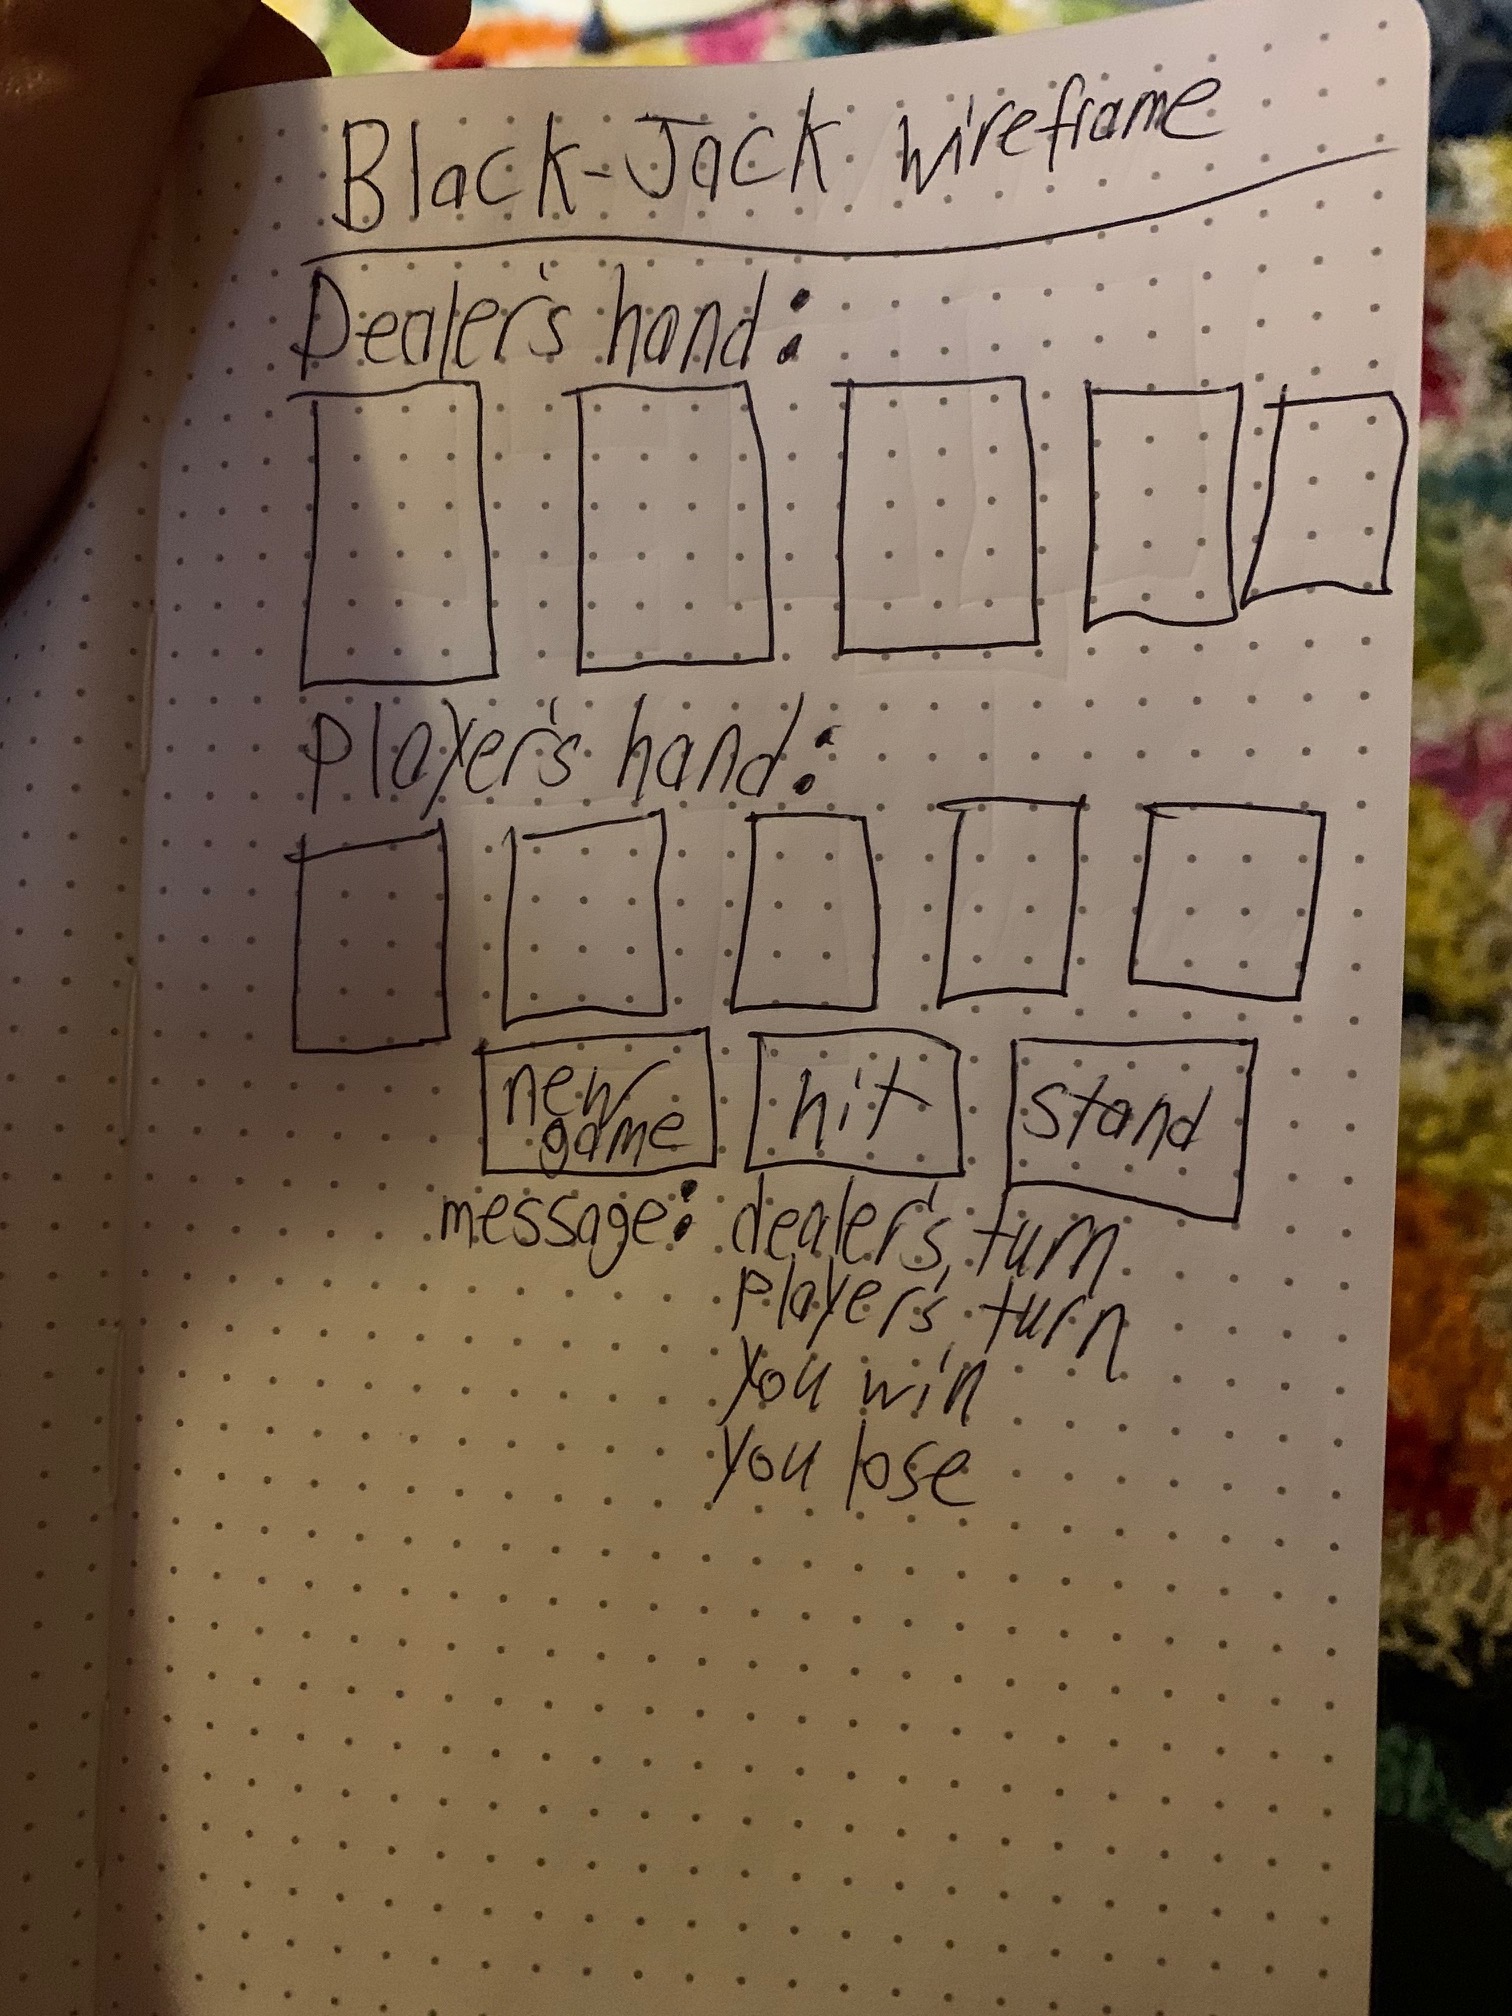 Black-Jack wireframe
Dealer's hand:
Player's hand:
new
game
hit
stand
message: dealer's turn
player's turn
You win
You lose